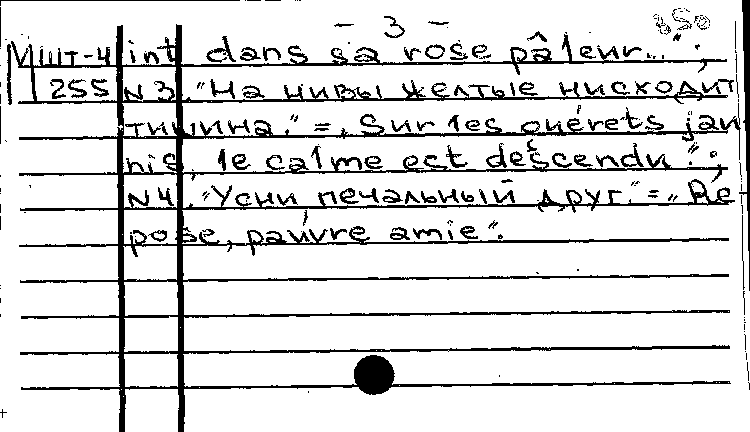 - 3 -
850
МШТ-4 int dans sa rose pâleur...";
255 N3. "На нивы желтые нисходит
тишина." = "Sur les guérets jau
nis, le calme est descendu.";
N4. "Усни печальный друг." = "Re-
pose, pauvre amie".